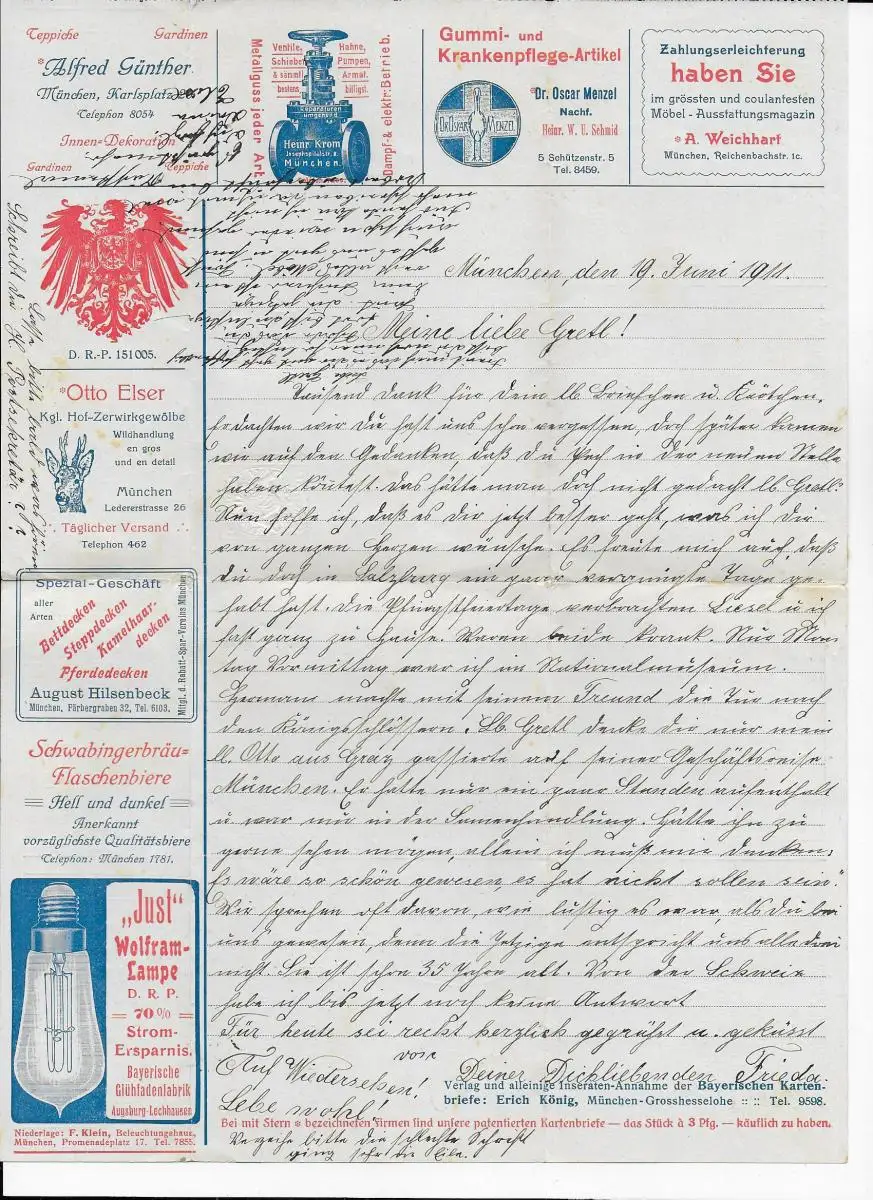 Teppiche Gardinen
*Alfred Günther
München, Karlsplatz
Telephon 8054
Innen-Dekoration
Gardinen Teppiche
Metallguss jeder Art.
Ventile, Hahne,
Schieber Pumpen,
& sämml. Armat.
bestens billigst.
Reparaturen
umgehend
Heinr. Krom
Josephspitalstr.
München.
Dampf- & elektr. Betrieb.
Gummi- und
Krankenpflege-Artikel
DR. OSKAR MENZEL
*Dr. Oscar Menzel
Nachf.
Heinr. W. U. Schmid
5 Schützenstr. 5
Tel. 8459.
Zahlungserleichterung
haben Sie
im grössten und coulantesten
Möbel-Ausstattungsmagazin
*A. Weichhart
München, Reichenbachstr. 1c.
D. R. P. 151005.
*Otto Elser
Kgl. Hof-Zerwirkgewölbe
Wildhandlung
en gros
und en detail
München
Ledererstrasse 26
Täglicher Versand
Telephon 462
Spezial-Geschäft
aller
Arten
Bettdecken
Steppdecken
Kamelhaar-
decken
Pferdedecken
August Hilsenbeck
München, Färbergraben 32, Tel. 6103.
Mitgl. d. Rabatt-Spar-Vereins München
Schwabingerbräu-
Flaschenbiere
Hell und dunkel
Anerkannt
vorzüglichste Qualitätsbiere
Telephon: München 1781.
„Just"
Wolfram-
Lampe
D. R. P.
70%
Strom-
Ersparnis.
Bayerische
Glühfadenfabrik
Augsburg-Lechhausen
Niederlage: F. Klein, Beleuchtungshaus,
München, Promenadeplatz 17. Tel. 7855.
Schreibt dir H. Postsekretär?
München, den 19. Juni 1911.
Meine liebe Gretl!
Tausend Dank für Dein lb. Briefchen u. Kärtchen.
dachten wir Du hast uns schon vergessen, doch später kamen
wir auf den Gedanken, daß Du Pech in der neuen Stelle
haben könntest. Das hätte man doch nicht gedacht lb. Gretl.
Nun hoffe ich, daß es Dir jetzt besser geht, was ich Dir
von ganzen Herzen wünsche. Es freute mich auch, daß
Du doch in Salzburg ein paar vergnügte Tage ge-
habt hast. Die Pfingstfeiertage verbrachten Liesel u ich
fast ganz zu Hause. Waren beide krank. Nur Mon-
tag Vormittag war ich im Nationalmuseum.
Hermann machte mit seinem Freund die Tur nach
den Königsschlössern. Lb. Gretl denke dir nur mein
lb. Otto aus Graz passierte auf seiner Geschäftsreise
München. Er hatte nur ein paar Stunden aufenthalt
u war nur in der Samenhandlung. Hätte ihn zu
gerne sehen mögen, allein ich muß mir denken:
Es wäre so schön gewesen, es hat nicht sollen sein".
Wir sprechen oft davon, wie lustig es war, als Du bei
uns gewesen, denn die Jetzige entspricht uns alle drei
nicht. Sie ist schon 35 Jahre alt. Von der Schweiz
habe ich bis jetzt noch keine Antwort
Für heute sei recht herzlich gegrüßt u. geküsst
von
Deiner Dichliebenden Frieda.
Auf Wiedersehen!
Lebe wohl!
Verlag und alleinige Inseraten-Annahme der Bayerischen Karten-
briefe: Erich König, München-Grosshesselohe :: :: Tel. 9598.
Bei mit Stern * bezeichneten Firmen sind unsere patentierten Kartenbriefe — das Stück à 3 Pfg. — käuflich zu haben.
Verzeihe bitte die schlechte Schrift
ging sehr in Eile.